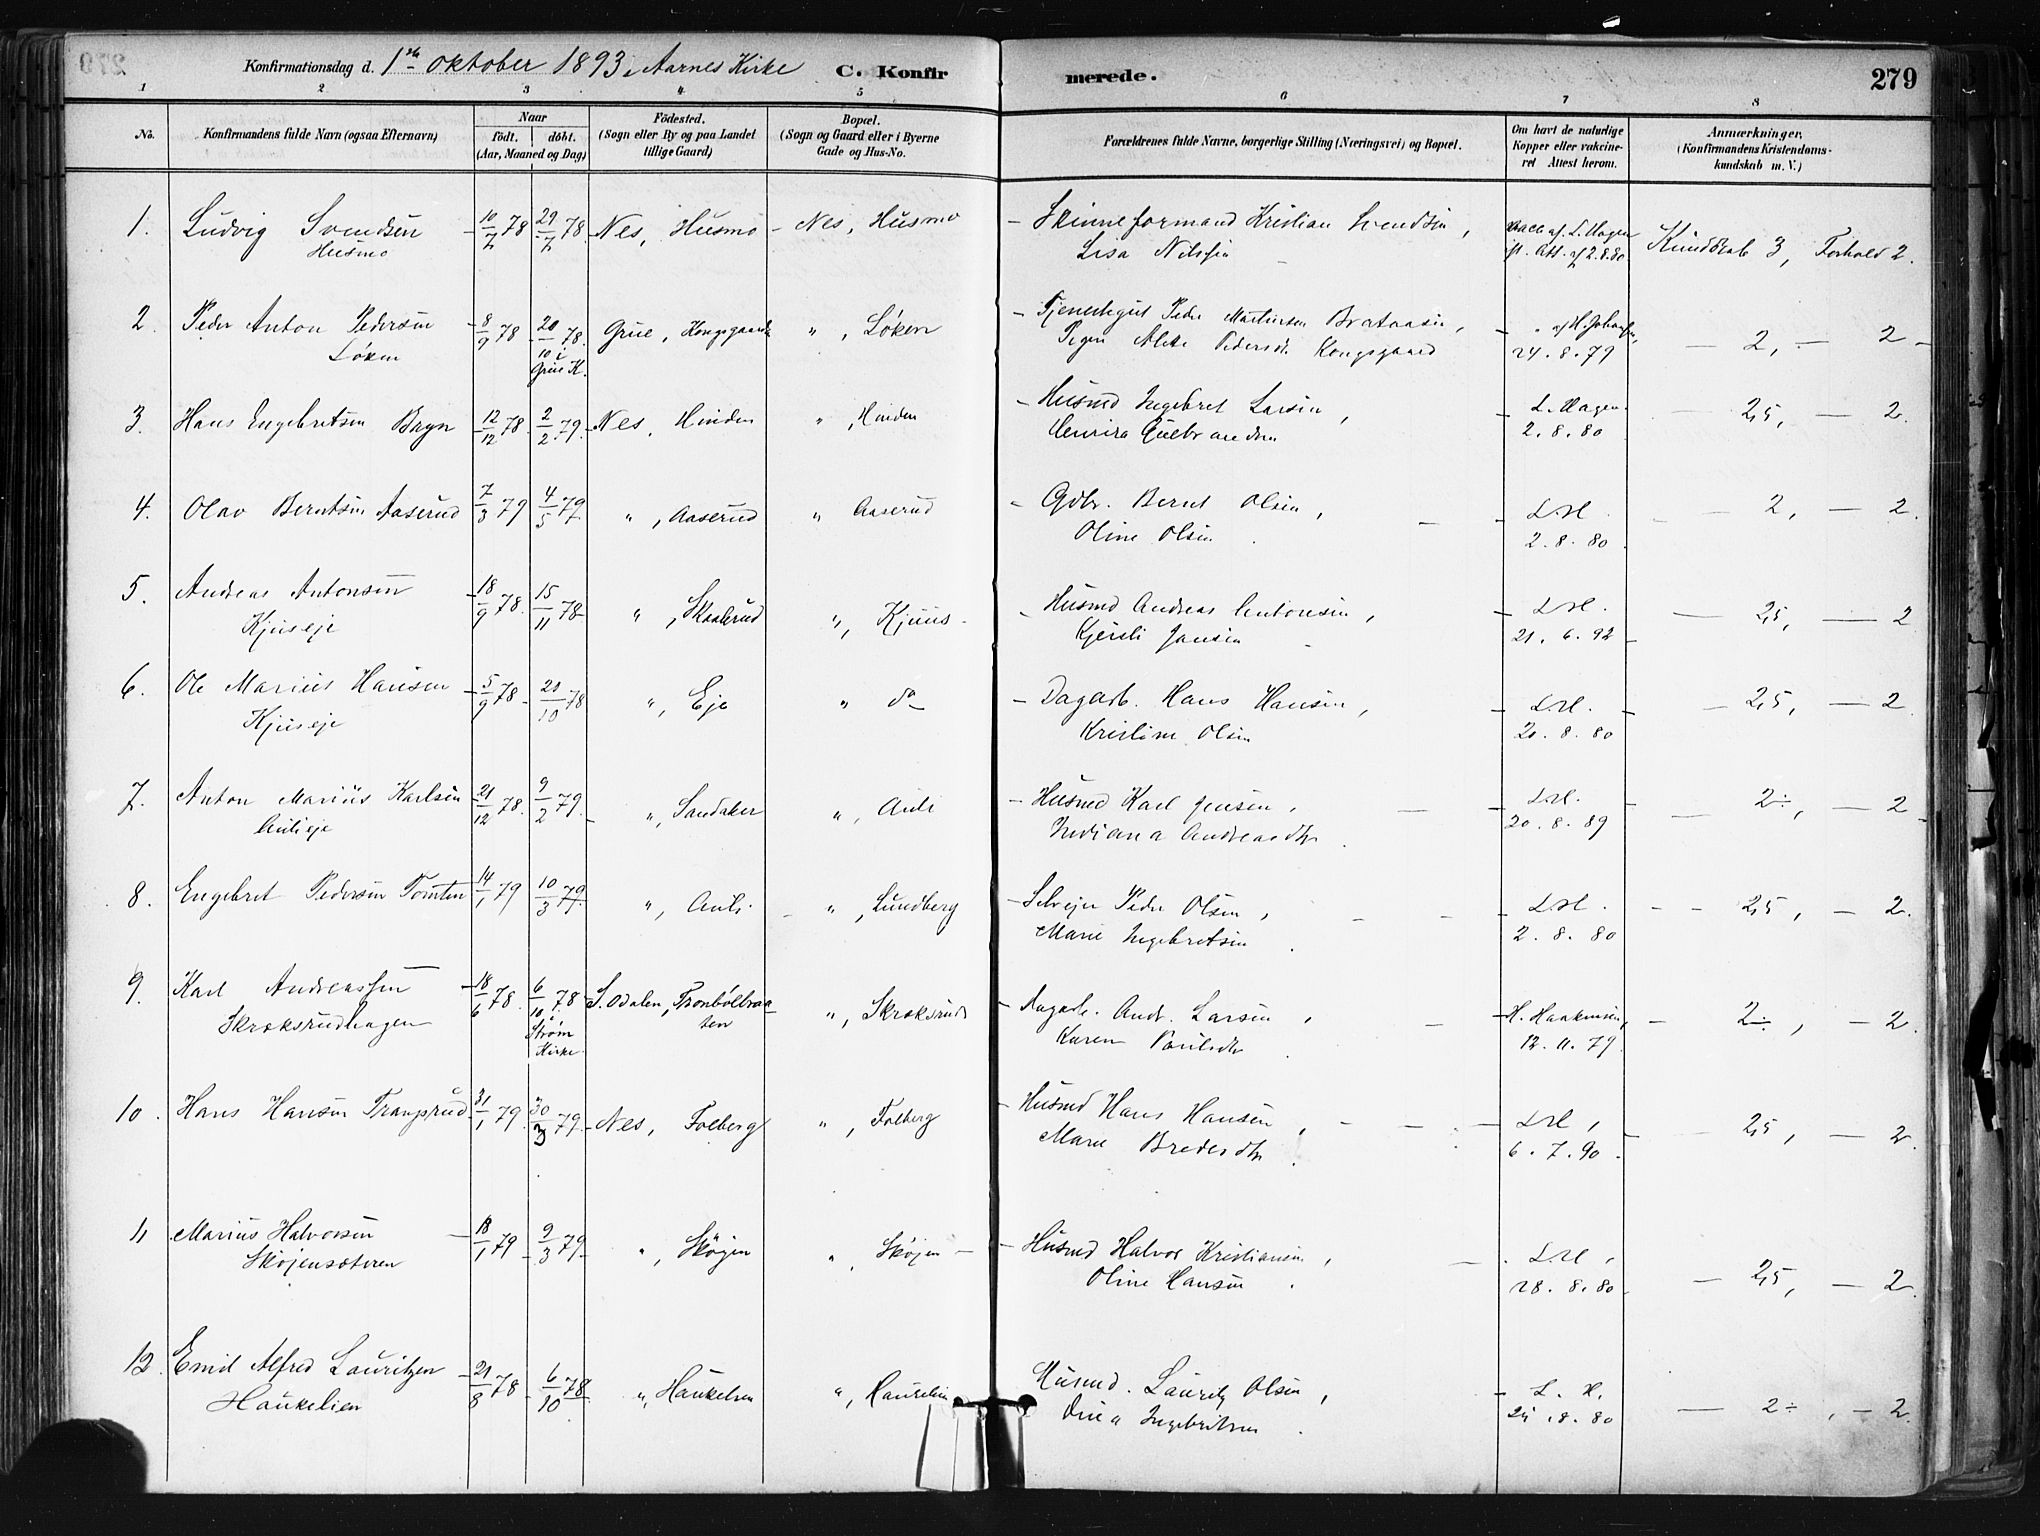 Konfirmationsdag d. 1ste Oktober 1893, Aarnes Kirke C. Konfirmerede. 279
1 2 3 4 5 6 7 8
No. Konfirmandens fulde Navn (ogsaa Efternavn) Naar födt. döbt. (Aar, Maaned og Dag) Födested. (Sogn eller By og paa Landet tillige Gaard) Bopæl. (Sogn og Gaard eller i Byerne Gade og Hus-No. Forældrenes fulde Navne, borgerlige Stilling (Næringsvei) og Bopæl. Om havt de naturlige Kopper eller vakcineret Attest herom. Anmærkninger, (Konfirmandens Kristendomskundskab m. V.)
1. Ludvig Svendsen 10/7 78 29/7 78 Nes, Husmo Nes, Husmo Skinneformand Kristian Svendsen, Vacc af L. Hagen Kundskab 3, Forhold 2.
Husmo Lisa Nilssen 2.8.80
2. Peder Anton Pedersen 8/9 78 20/10 78 i Grue K. Grue, Kongsgaard " , Løken Tjenestegut Peder Martinsen Brataasen, " af H. Johansen, 2, 2
Løken Pige Alette Pedersdt. Kongsgaard 24.8.79
3. Hans Engebretsen Bryn 12/12 78 2/2 79 Nes, Hinden " , Hinden Husmd Ingebret Larsen, L. Hagen 2,5, 2.
Gulbrandsen 2.8.80
4. Olav Berntsen Aaserud 7/3 79 4/5 79 " , Aaserud " Aaserud Gdbr. Bernt Olsen, L.H. 2, 2.
Oline Olsen 2.8.80
5. Andreas Antonsen 18/9 78 15/11 78 " , Skaalerud " , Kjuus Husmd Andreas Antonsen, L.H. 2,5, 2
Kjuseje Kjersti Jansen 21.6.92
6. Ole Marius Hansen 5/9 78 20/10 78 " , Eje " do Dagarb. Hans Hansen, L.H. 2,5, 2
Kjuseje Kristine Olsen 20.8.80
7. Anton Marius Karlsen 21/12 78 9/2 79 " , Sandaker " , Auli Husmd Karl Jensen, L.H. 2÷, 2
Aulieje Indiana Andreasdtr 20.8.89
8. Engebret Pedersen Tomten 14/1 79 10/3 79 " , Auli " , Lundberg Selvejer Peder Olsen, L.H. 2,5, 2.
Marie Ingebretsen 2.8.80
9. Karl Andreassen 18/6 78 6/10 78 i Strøm Kirke S. Odalen, Tronbølbraaten " , Skraksrud Dagarb. Andr. Larsen, H. Haakensen, 2÷, 2.
Skraksrudhagen Karen Paulsdtr 12.11.79
10. Hans Hansen Trangsrud 31/1 79 30/3 79 Nes, Folberg " , Folberg Husmd Hans Hansen, L.H, 2,5, 2
Marie Bredesdtr 6.7.90
11 Marius Halvorsen 18/1 79 9/3 79 " , Skøjen " , Skøjen Husmd Halvor Kristiansen, L.H, 2,5, 2.
Skøjensæteren Oline Hansen 28.8.80
12. Emil Alfred Lauritzen 21/8 78 6/10 78 " , Haukelien " , Haukelien Husmd. Lauritz Olsen, L.H. 2÷, 2.
Haukelien Ingebritsen .8.80